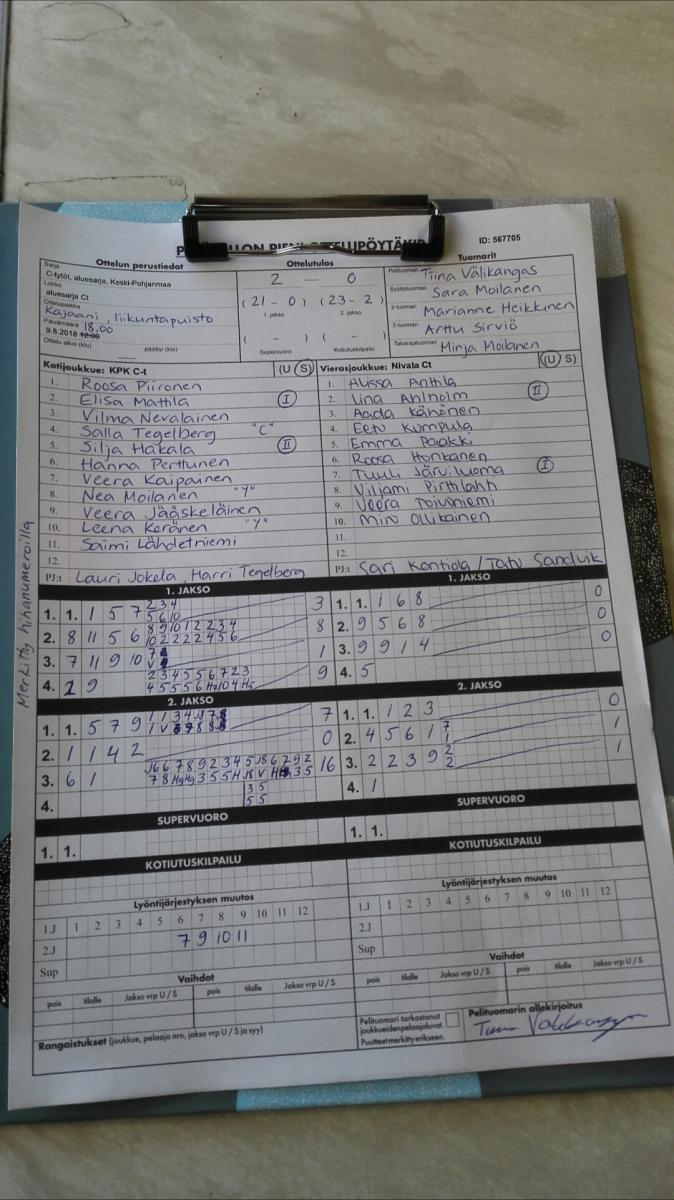 ID: 567705
Ottelun perustiedot
Ottelutulos
Tuomarit
Sarja
C-tytöt, aluesarja, Keski-Pohjanmaa
Lohko
aluesarja Ct
Ottelupaikka
Kajaani, liikuntapuisto
Päivämäärä 18.00
9.8.2018 12:00
Ottelu alkoi (klo) päättyi (klo)
2 — 0
(21 - 0) (23 - 2)
1. jakso 2. jakso
( - ) ( - )
Supervuoro Kotiutuskilpailu
Pelituomari Tiina Välikangas
Syöttötuomari Sara Moilanen
2-tuomari Marianne Heikkinen
3-tuomari Arttu Sirviö
Takarajatuomari Mirja Moilanen
Kotijoukkue: KPK C-t (U S)
1. Roosa Piironen
2. Elisa Mattila I
3. Vilma Nevalainen
4. Salla Tegelberg "C"
5. Silja Hakala II
6. Hanna Perttunen
7. Veera Kaipainen
8. Nea Moilanen "Y"
9. Veera Jääskeläinen
10. Leena Keränen "Y"
11. Saimi Lähdetniemi
12.
PJ:t Lauri Jokela, Harri Tegelberg
Vierasjoukkue: Nivala Ct (U S)
1. Alissa Anttila
2. Iina Ahlholm II
3. Aada Känänen
4. Eetu Kumpula
5. Emma Paakki
6. Roosa Honkanen
7. Tuuli Järviluoma I
8. Viljami Pirttilahti
9. Veera Toivoniemi
10. Minj Ollikainen
11.
12.
PJ:t Sari Kontiola / Tatu Sandvik
Merkitty hihanumeroilla
1. JAKSO
1. 1. 1 5 7 2 3 4 3
5 6 10
2. 8 11 5 6 8 9 10 1 2 2 3 4 8
10 2 2 2 2 4 5 6
3. 7 11 9 10 7 1
4. 1 9 2 3 4 5 5 6 7 2 3 9
1. JAKSO
1. 1. 1 6 8 0
2. 9 5 6 8 0
3. 9 9 1 4 0
4. 5
2. JAKSO
1. 1. 5 7 9 7
2. 1 1 4 2 0
3. 6 1 16
3 5
5 5
4.
2. JAKSO
1. 1. 1 2 3 0
2. 4 5 6 1 7 1
1
3. 2 2 3 9 2 1
2
4. 1
SUPERVUORO
1. 1.
SUPERVUORO
1. 1.
KOTIUTUSKILPAILU
KOTIUTUSKILPAILU
Lyöntijärjestyksen muutos
1.J 1 2 3 4 5 6 7 8 9 10 11 12
2.J 7 9 10 11
Sup
Lyöntijärjestyksen muutos
1.J 1 2 3 4 5 6 7 8 9 10 11 12
2.J
Sup
Vaihdot
pois tilalle Jakso vrp U / S pois tilalle Jakso vrp U / S
Vaihdot
pois tilalle Jakso vrp U / S pois tilalle Jakso vrp U / S
Rangaistukset (joukkue, pelaaja nro, jakso vrp U / S ja syy)
Pelituomari tarkastanut
joukkueidenpelaajaluvat.
Puutteet merkitty erikseen.
Pelituomarin allekirjoitus